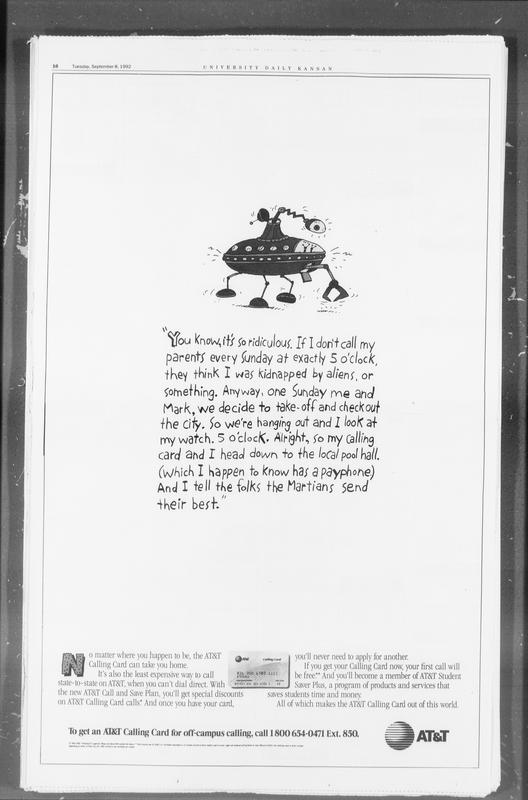 16 Tuesday, September 8, 1992 UNIVERSITY DAILY KANSAN
"You know, it's so ridiculous. If I don't call my
parents every Sunday at exactly 5 o'clock,
they think I was kidnapped by aliens, or
something. Anyway, one Sunday me and
Mark, we decide to take-off and check out
the city. So we're hanging out and I look at
my watch. 5 o'clock. Alright, so my calling
card and I head down to the local pool hall.
(Which I happen to know has a payphone)
And I tell the folks the Martians send
their best."
No matter where you happen to be, the AT&T
Calling Card can take you home.
It's also the least expensive way to call
state-to-state on AT&T, when you can't dial direct. With
the new AT&T Call and Save Plan, you'll get special discounts
on AT&T Calling Card calls* And once you have your card,
AT&T Calling Card
you'll never need to apply for another.
If you get your Calling Card now, your first call will
be free** And you'll become a member of AT&T Student
Saver Plus, a program of products and services that
saves students time and money.
All of which makes the AT&T Calling Card out of this world.
To get an AT&T Calling Card for off-campus calling, call 1 800 654-0471 Ext. 850.
AT&T